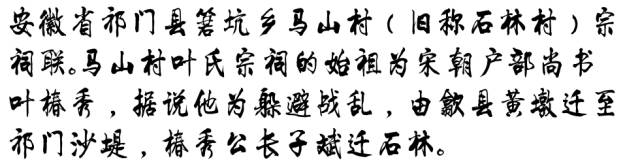 安徽省祁门县箬坑乡马山村（旧称石林村）宗
祠联。马山村叶氏宗祠的始祖为宋朝户部尚书
叶椿秀，据说他为躲避战乱，由歙县黄墩迁至
祁门沙堤，椿秀公长子斌迁石林。